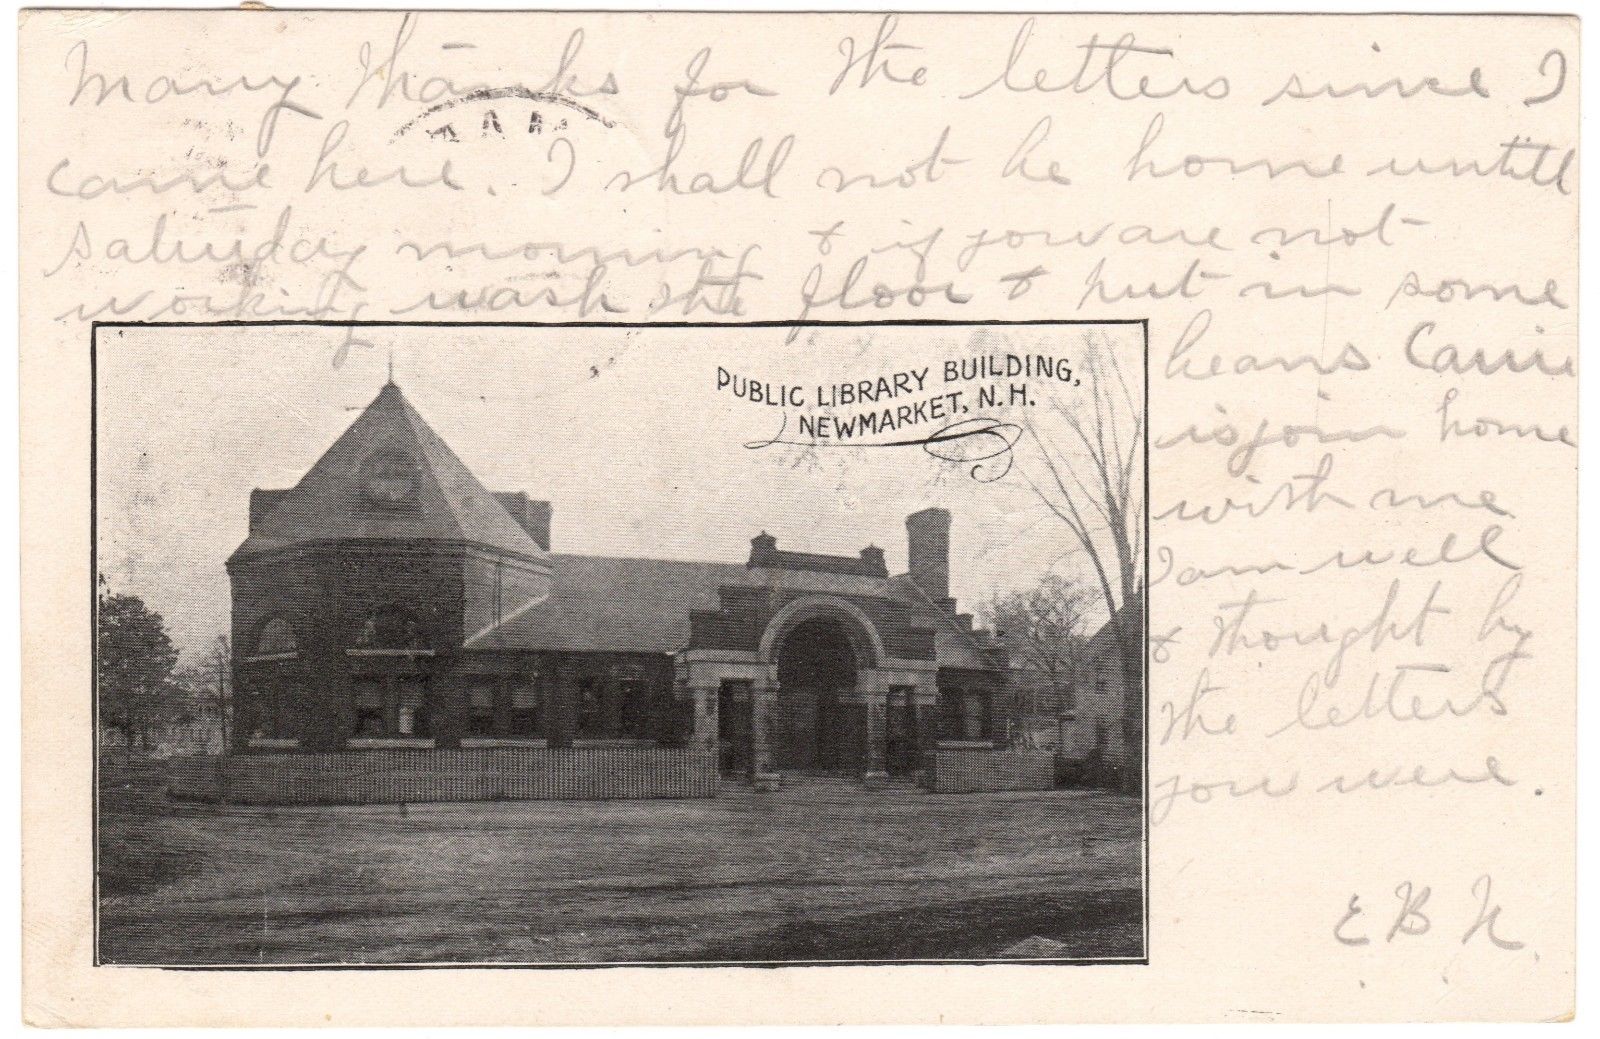 Many thanks for the letters since I
came here. I shall not be home untill
Saturday morning & if you are not
working wash the floor & put in some
beans Carrie
is join home
with me
I am well
& thought by
the letters
you were.
E B N
PUBLIC LIBRARY BUILDING,
NEWMARKET, N.H.